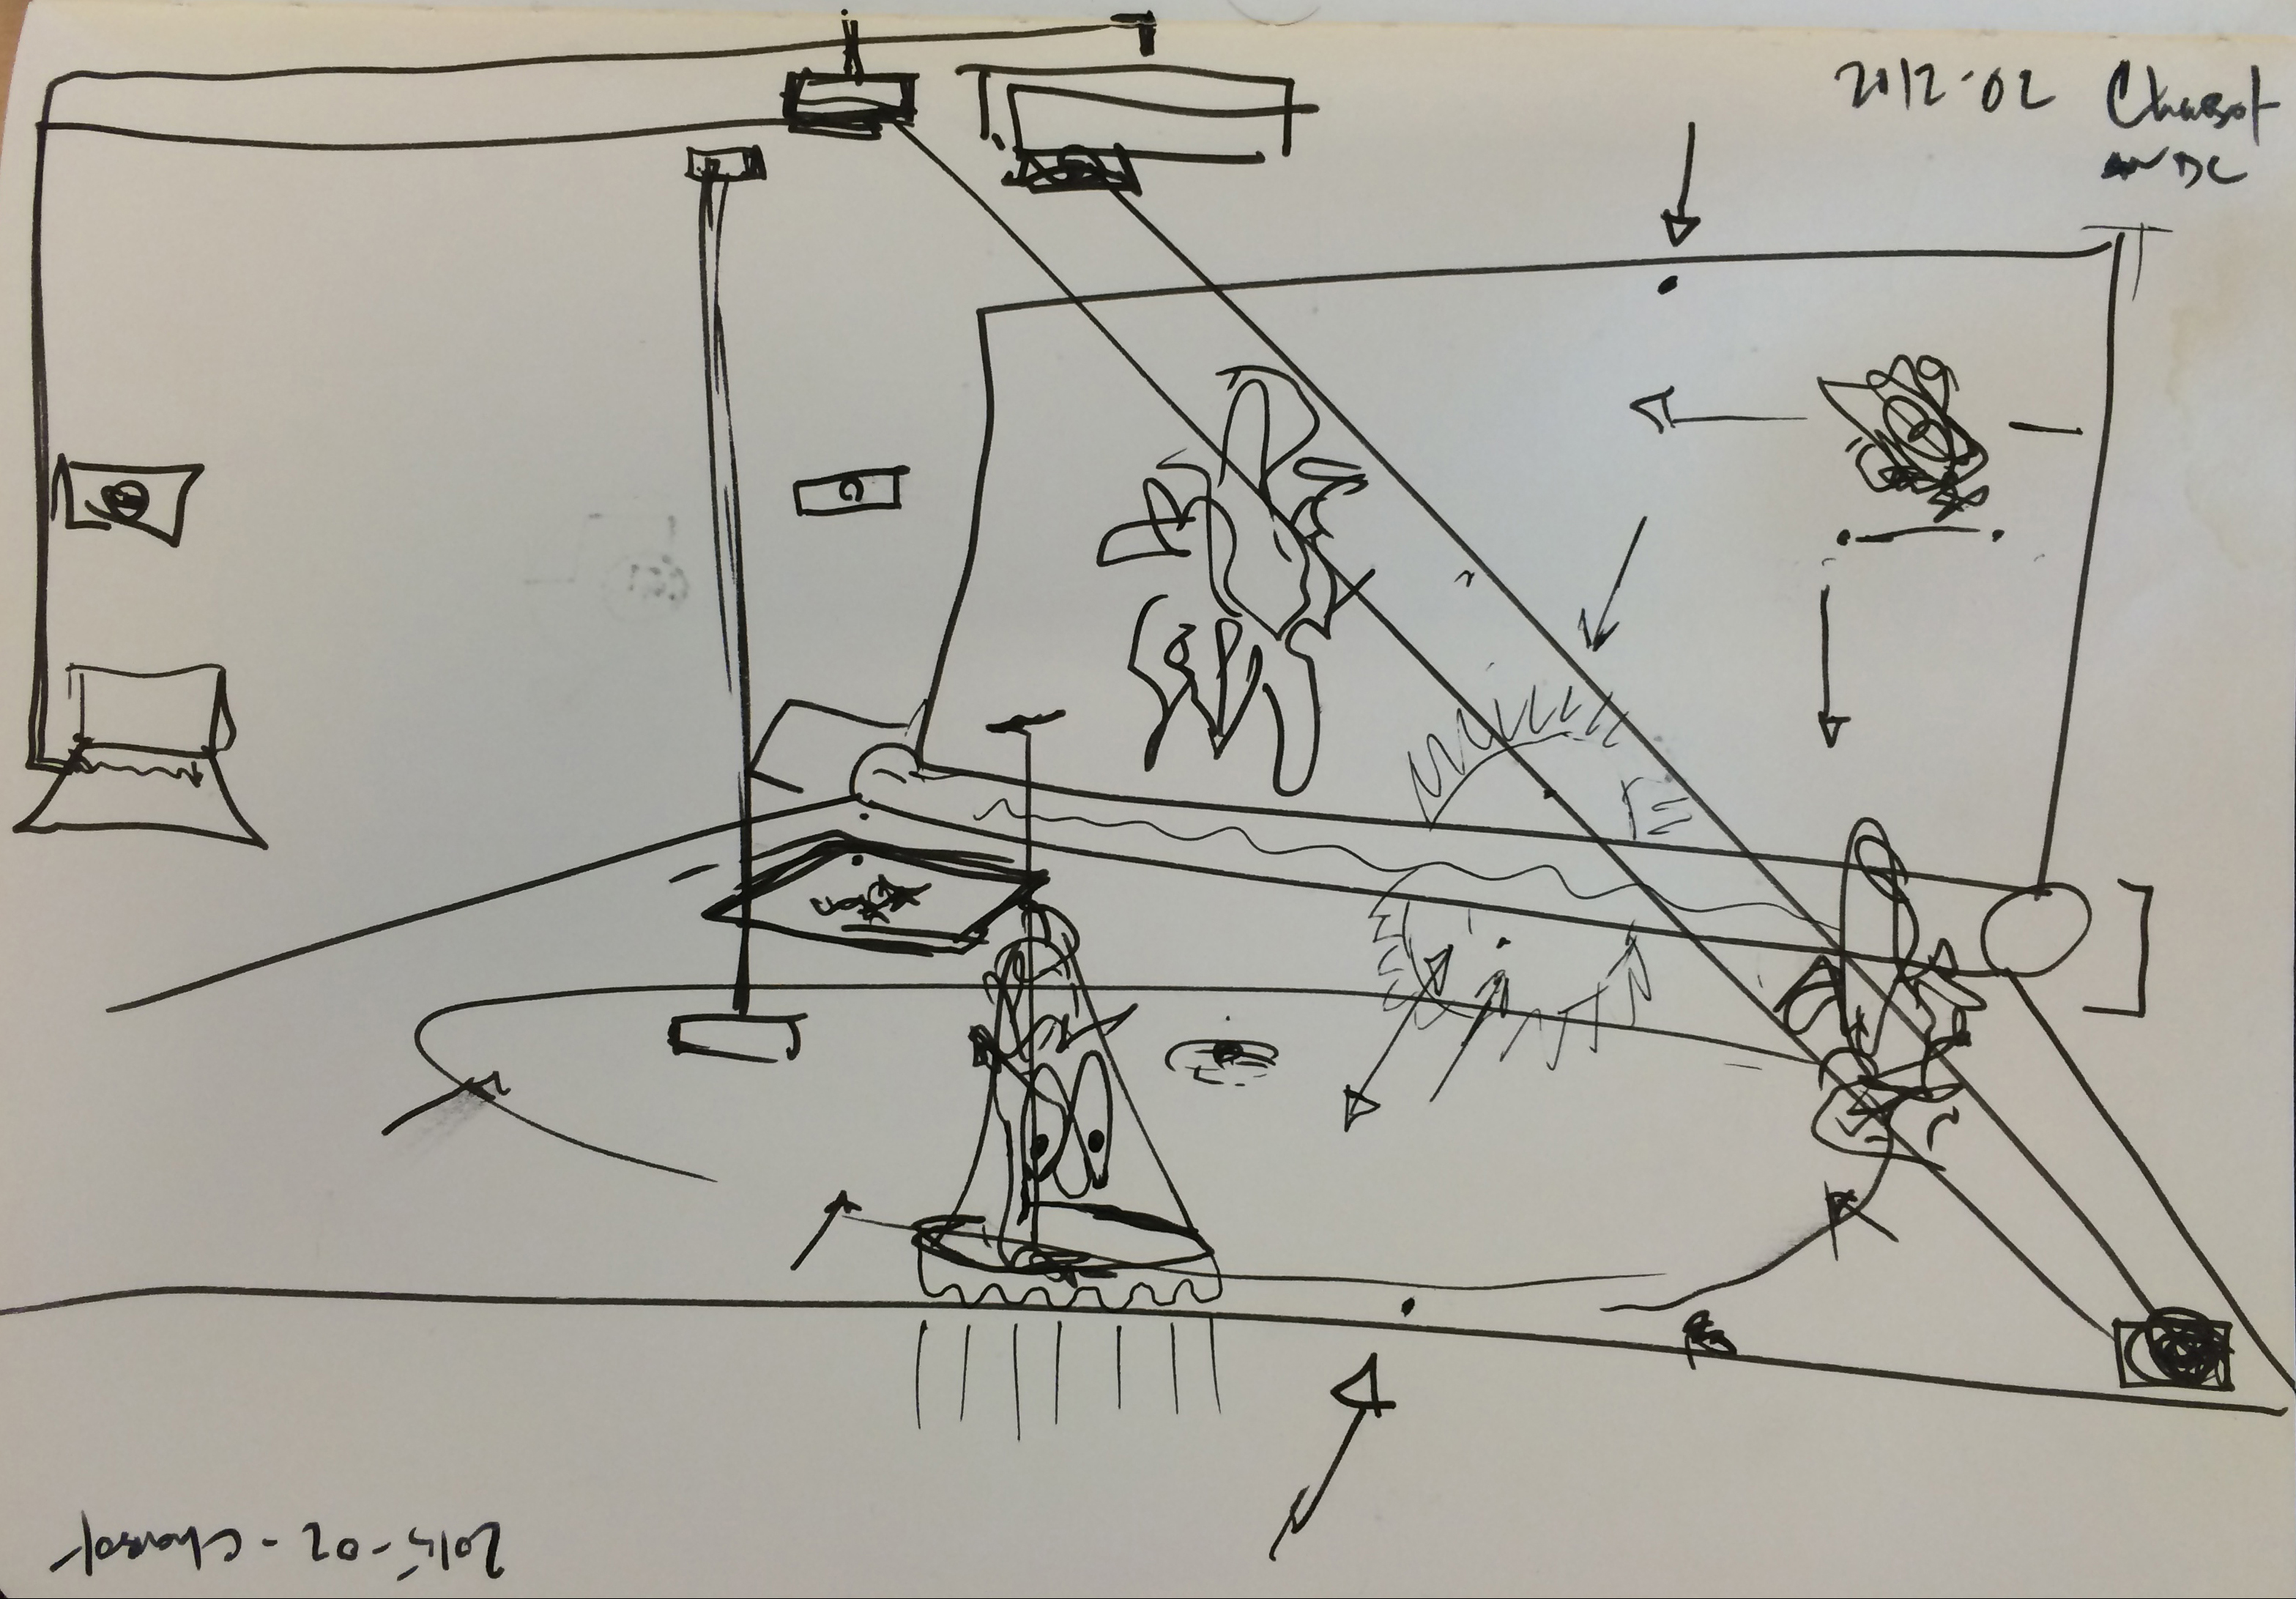 2012-02 Chabot
2015-02-Chabot